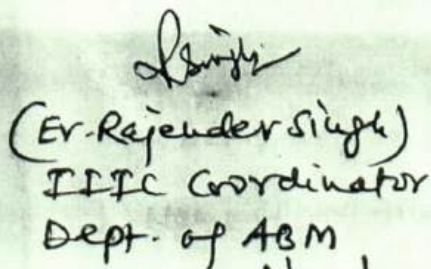 RSingh
(Er. Rajender Singh)
IIIC Coordinator
Dept. of ABM